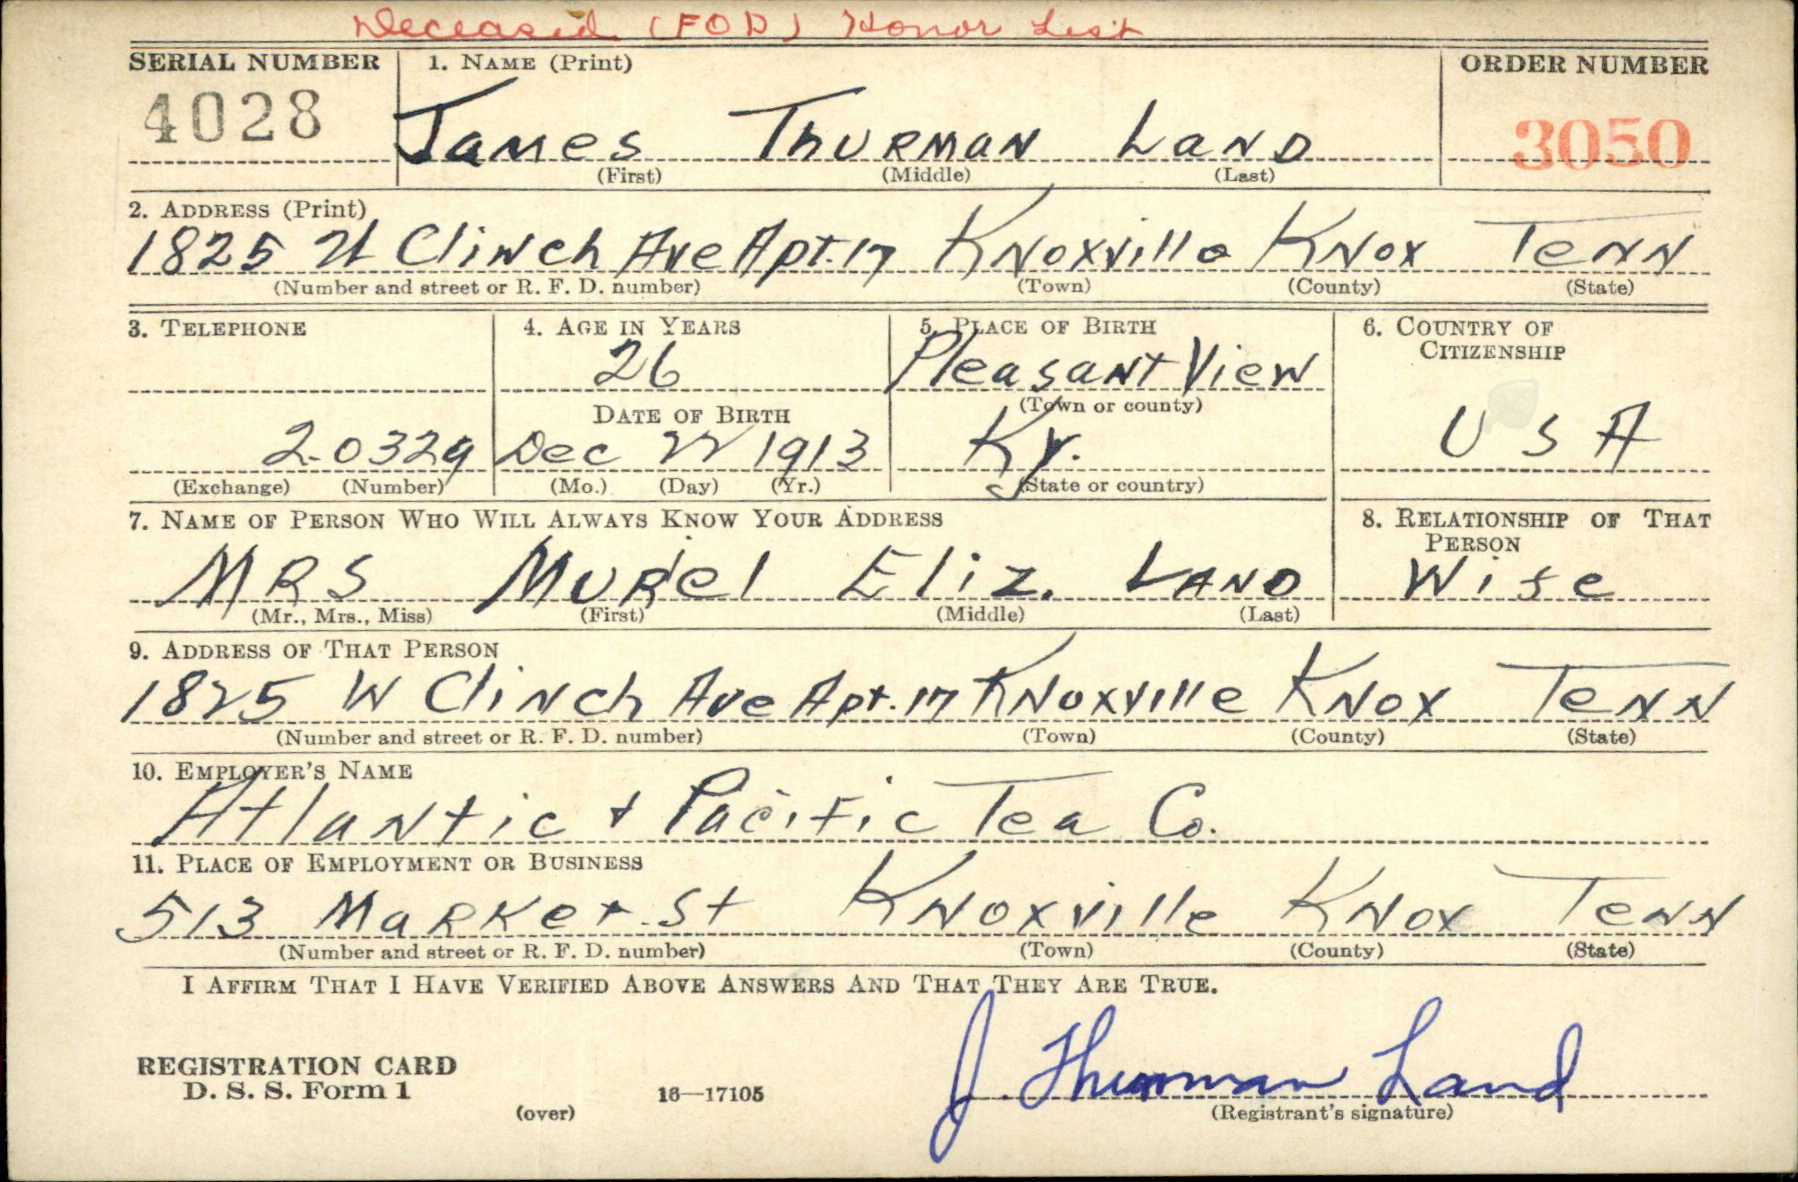 Deceased (FOD) Honor List
SERIAL NUMBER 1. NAME (Print) ORDER NUMBER
4028 James Thurman Land 3050
(First) (Middle) (Last)
2. ADDRESS (Print)
1825 W Clinch Ave Apt. 17 Knoxville Knox Tenn
(Number and street or R. F. D. number) (Town) (County) (State)
3. TELEPHONE 4. AGE IN YEARS 5. PLACE OF BIRTH 6. COUNTRY OF CITIZENSHIP
26 Pleasant View
DATE OF BIRTH (Town or county)
2-0329 Dec 22 1913 Ky. U S A
(Exchange) (Number) (Mo.) (Day) (Yr.) (State or country)
7. NAME OF PERSON WHO WILL ALWAYS KNOW YOUR ADDRESS 8. RELATIONSHIP OF THAT PERSON
MRS Muriel Eliz. Land Wife
(Mr., Mrs., Miss) (First) (Middle) (Last)
9. ADDRESS OF THAT PERSON
1825 W Clinch Ave Apt. 17 Knoxville Knox Tenn
(Number and street or R. F. D. number) (Town) (County) (State)
10. EMPLOYER'S NAME
Atlantic + Pacific Tea Co.
11. PLACE OF EMPLOYMENT OR BUSINESS
513 Market St Knoxville Knox Tenn
(Number and street or R. F. D. number) (Town) (County) (State)
I AFFIRM THAT I HAVE VERIFIED ABOVE ANSWERS AND THAT THEY ARE TRUE.
REGISTRATION CARD
D. S. S. Form 1 (over) 16—17105 J. Thurman Land
(Registrant's signature)